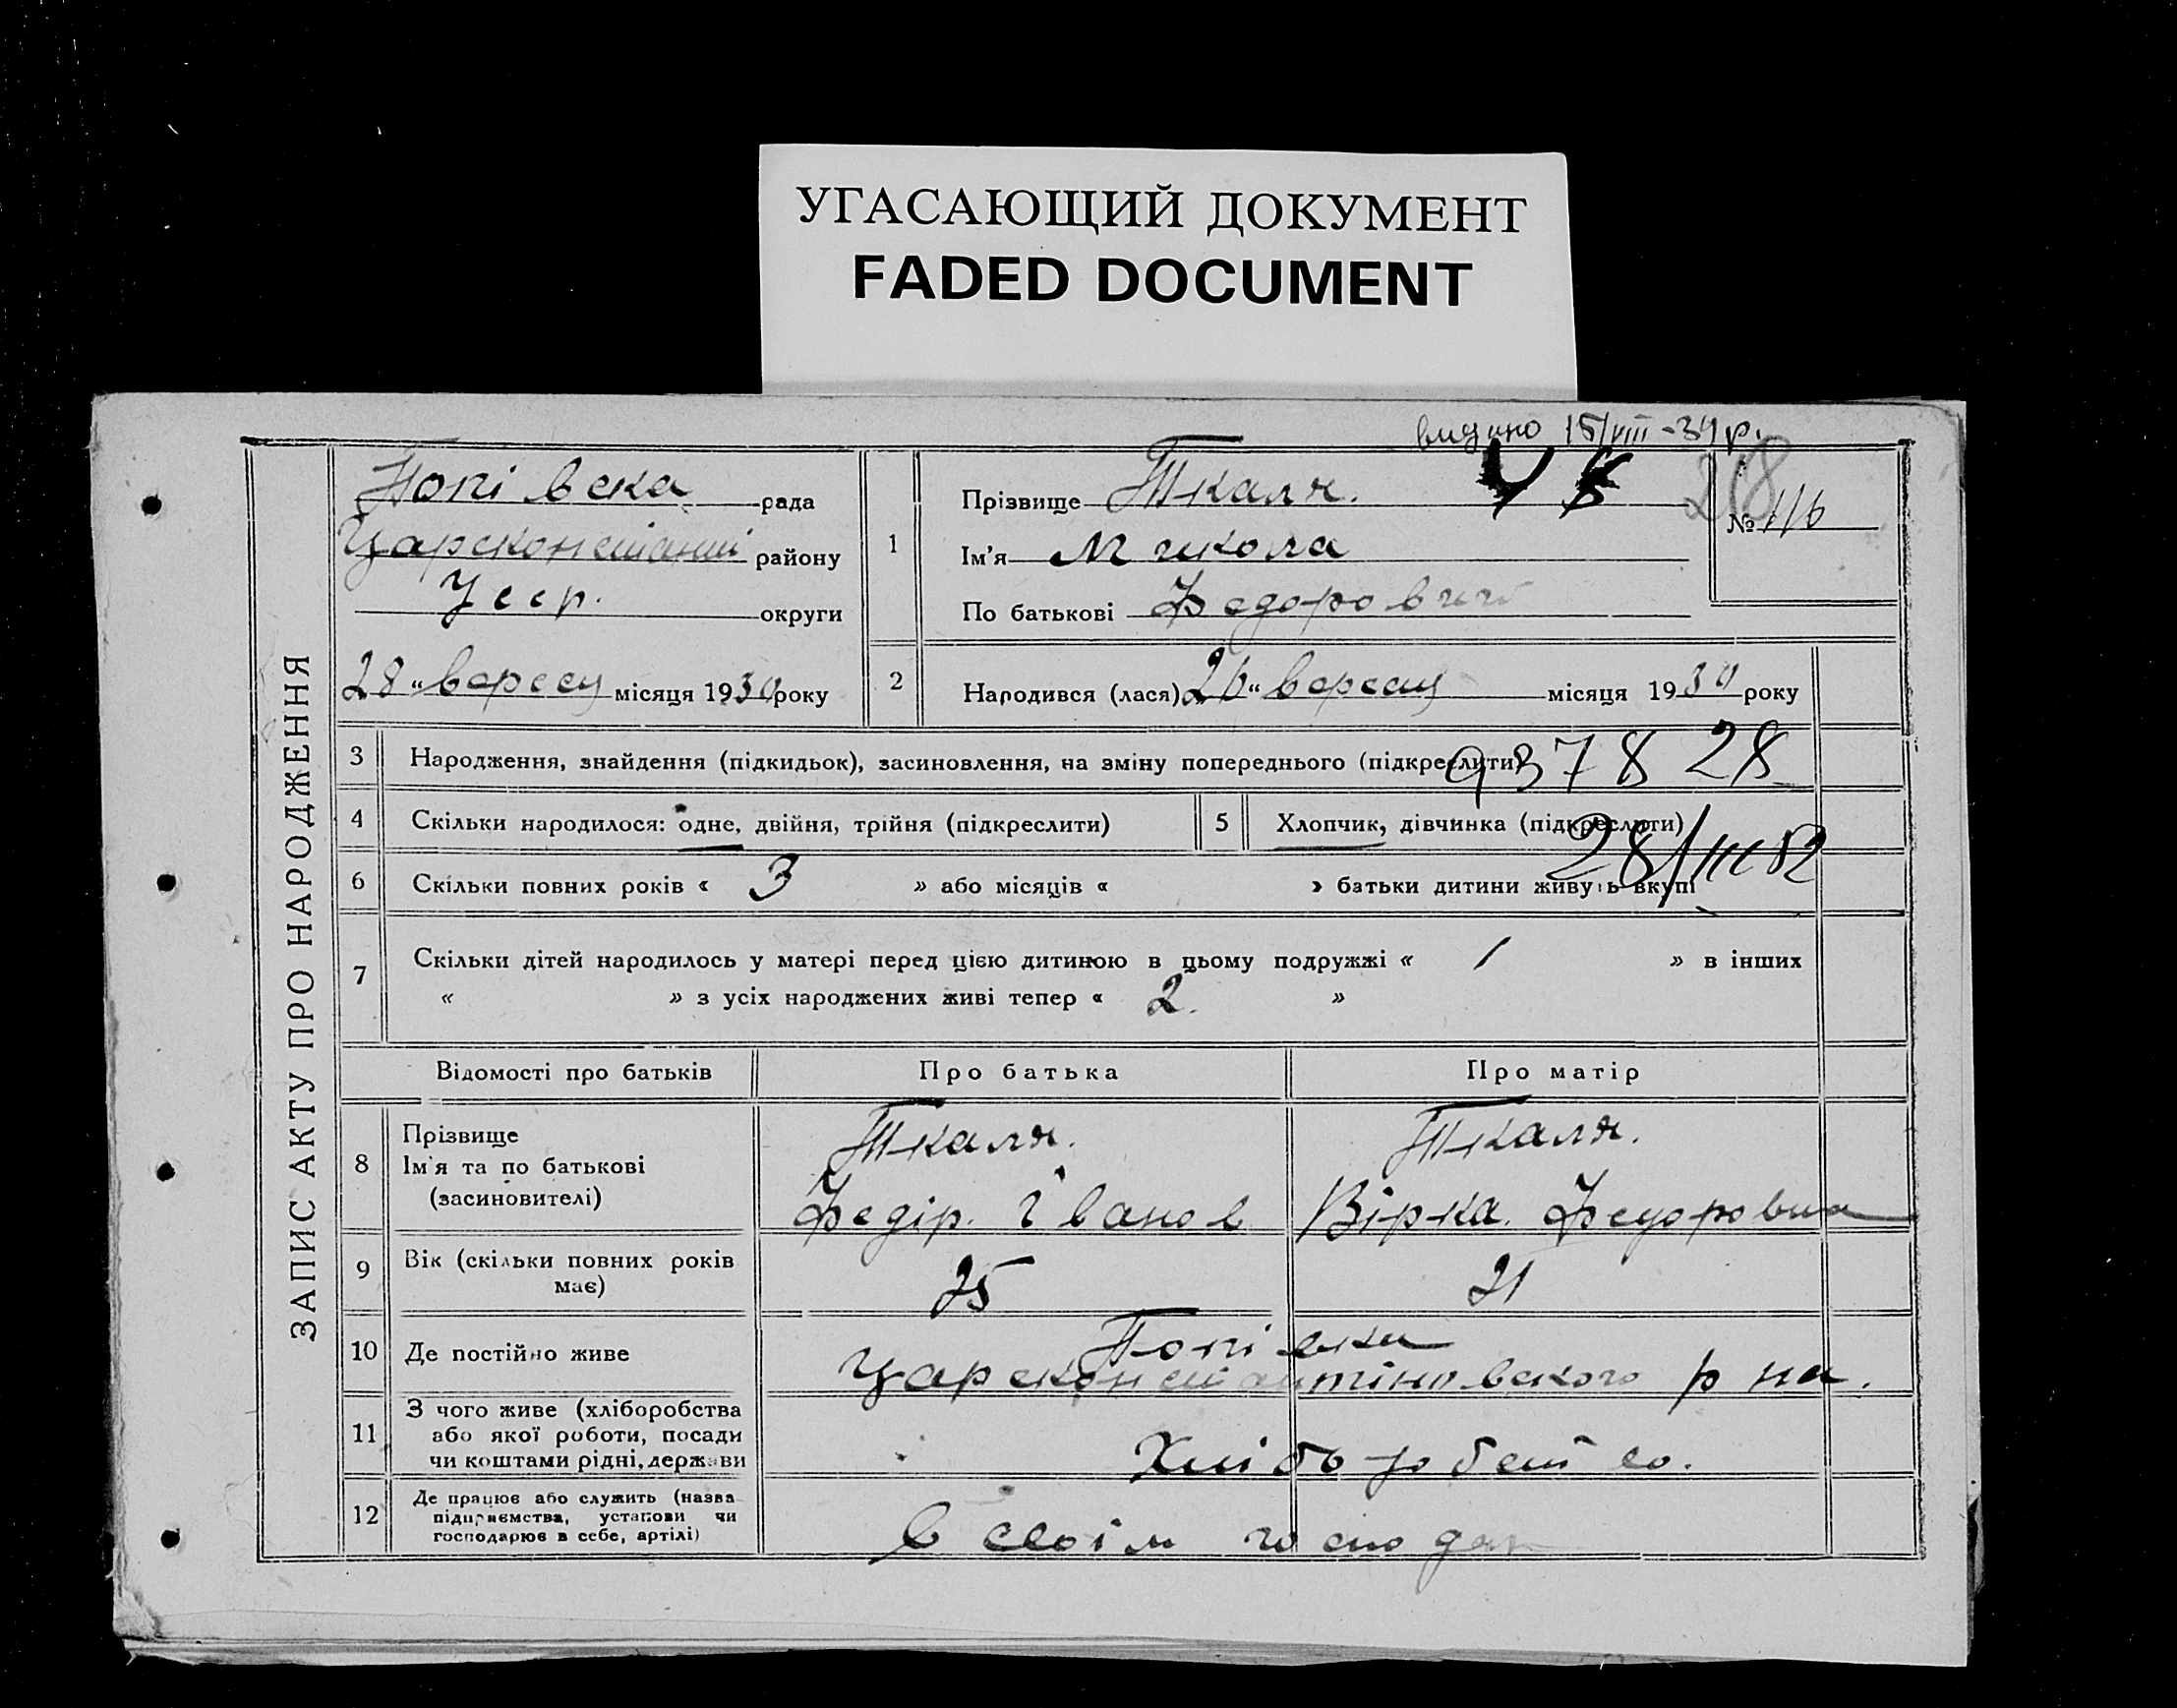 УГАСАЮЩИЙ ДОКУМЕНТ
FADED DOCUMENT
видано 15/VIII-34 р.
ЗАПИС АКТУ ПРО НАРОДЖЕННЯ
Попівска рада
району
Усср. округи
28 "вересу місяця 1930 року
1
Прізвище Ткаля.
Ім'я Микола
По батькові Федорович
218
№ 116
2
Народився (лася) 26 "вересу місяця 1930 року
3 Народження, знайдення (підкидьок), засиновлення, на зміну попереднього (підкреслити)
937828
4 Скільки народилося: одне, двійня, трійня (підкреслити) 5 Хлопчик, дівчинка (підкреслити)
28/III 52
6 Скільки повних років « 3 » або місяців « » батьки дитини живуть вкупі
7 Скільки дітей народилось у матері перед цією дитиною в цьому подружжі « 1 » в інших
« » з усіх народжених живі тепер « 2. »
Відомості про батьків Про батька Про матір
8 Прізвище
Ім'я та по батькові
(засиновителі)
Ткаля. Ткаля.
Федір. Іванов Вірка. Федоровна
9 Вік (скільки повних років
має)
25 21
10 Де постійно живе
Попівка
Царсконстантіновского р на.
11 З чого живе (хліборобства
або якої роботи, посади
чи коштами рідні, держави
12 Де працює або служить (назва
підприємства, установи чи
господарює в себе, артілі)
в своім господар